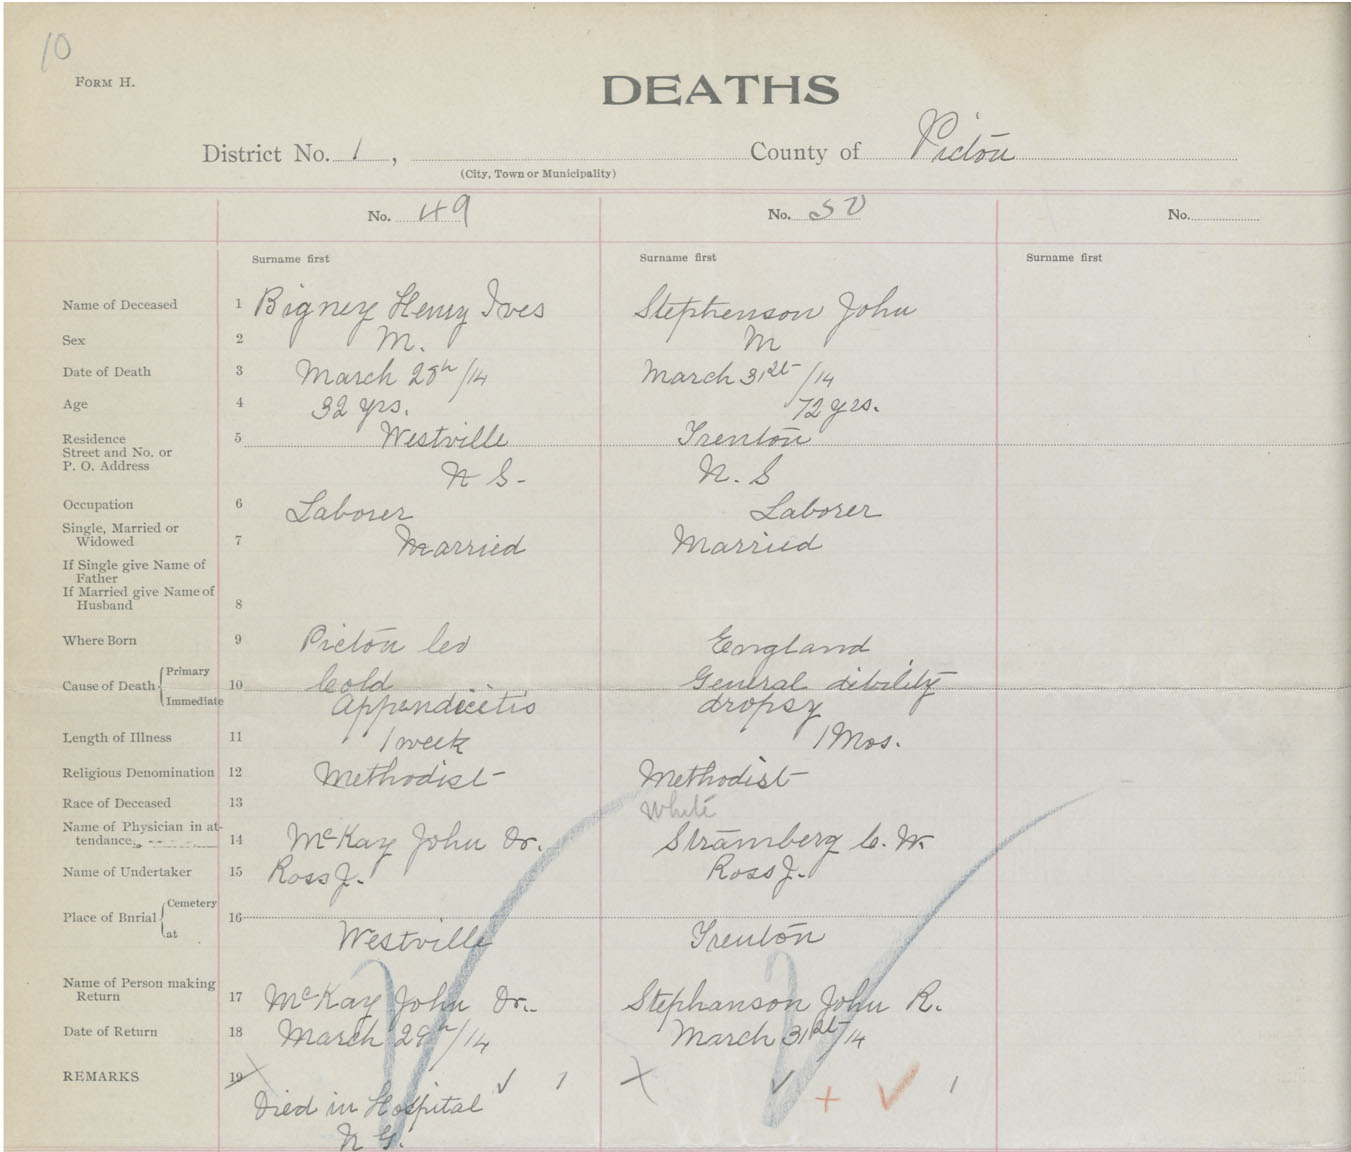 10
FORM H.
DEATHS
District No. 1, County of Pictou
(City, Town or Municipality)
No. 49 No. 50 No.
Surname first Surname first Surname first
Name of Deceased 1 Bigney Henry Ives Stephenson John
Sex 2 M. M
Date of Death 3 March 28th/14 March 31st/14
Age 4 32 yrs. 72 yrs.
Residence 5 Westville Trenton
Street and No. or
P. O. Address N S- N. S
Occupation 6 Laborer Laborer
Single, Married or
Widowed 7 Married Married
If Single give Name of
Father
If Married give Name of
Husband 8
Where Born 9 Pictou Co England
Cause of Death Primary 10 Cold General dibility
Immediate Appendicitis dropsy
Length of Illness 11 1 week 1 Mos.
Religious Denomination 12 Methodist Methodist
Race of Deceased 13 White
Name of Physician in at-
tendance. 14 McKay John Dr. Stramberg C. W.
Name of Undertaker 15 Ross J. Ross J.
Place of Bnrial Cemetery 16
at Westville Trenton
Name of Person making
Return 17 McKay John Dr. Stephanson John R.
Date of Return 18 March 29th/14 March 31st/14
REMARKS 19 1 1
Died in Hospital
N G.